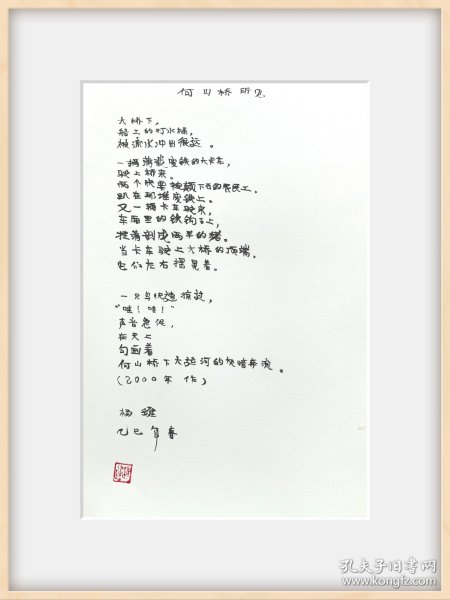 何山桥所见
大桥下，
船上的打水桶，
被流水冲出很远。
一辆满载废铁的大卡车，
驶上桥来。
两个快要被颠下来的农民工，
趴在那堆废铁上。
又一辆卡车驶来，
车厢里的铁钩子上，
挂着剖成两半的猪。
当卡车驶上大桥的顶端，
它们左右摇晃着。
一只鸟快速掠过，
“哇！哇！”
声音急促，
在天上
勾画着
何山桥下大运河的灰暗奔流。
（2000年 作）
杨键
乙巳年春
孔夫子旧书网
www.kongfz.com